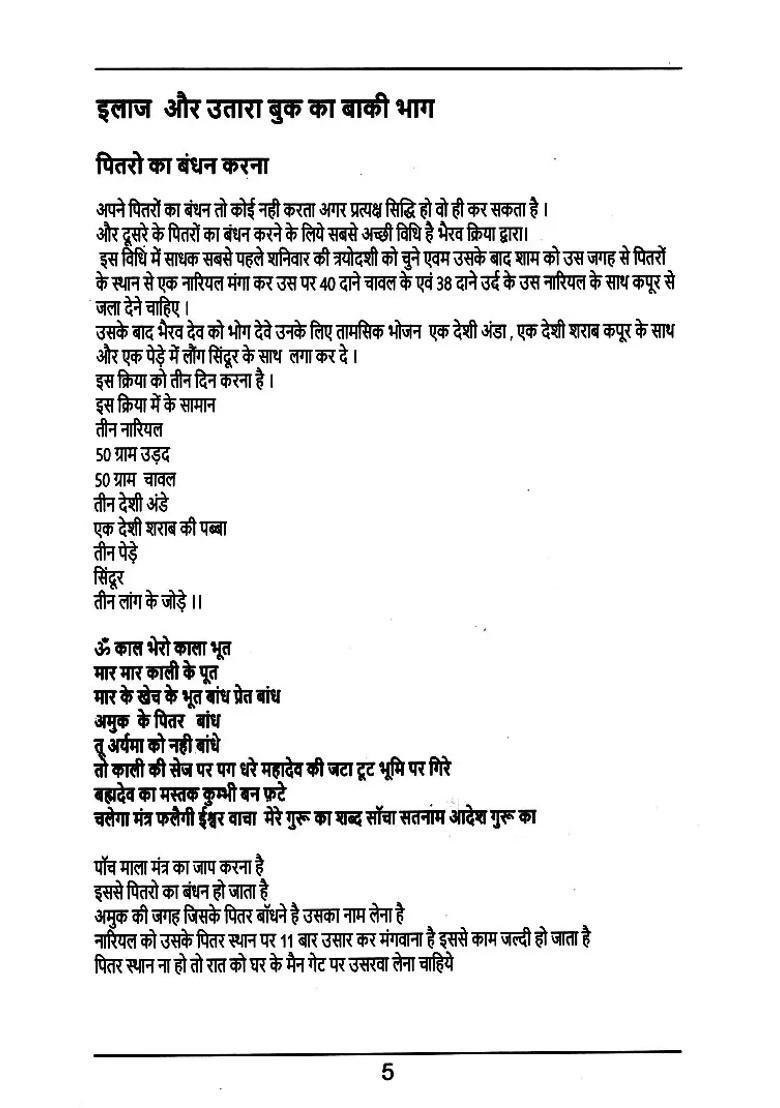 इलाज और उतारा बुक का बाकी भाग
पितरो का बंधन करना
अपने पितरों का बंधन तो कोई नही करता अगर प्रत्यक्ष सिद्धि हो वो ही कर सकता है ।
और दूसरे के पितरों का बंधन करने के लिये सबसे अच्छी विधि है भैरव क्रिया द्वारा।
इस विधि में साधक सबसे पहले शनिवार की त्रयोदशी को चुने एवम उसके बाद शाम को उस जगह से पितरों
के स्थान से एक नारियल मंगा कर उस पर 40 दाने चावल के एवं 38 दाने उर्द के उस नारियल के साथ कपूर से
जला देने चाहिए ।
उसके बाद भैरव देव को भोग देवे उनके लिए तामसिक भोजन एक देशी अंडा , एक देशी शराब कपूर के साथ
और एक पेड़े में लौंग सिंदूर के साथ लगा कर दे ।
इस क्रिया को तीन दिन करना है ।
इस क्रिया में के सामान
तीन नारियल
50 ग्राम उड़द
50 ग्राम चावल
तीन देशी अंडे
एक देशी शराब की पब्बा
तीन पेड़े
सिंदूर
तीन लांग के जोड़े ।।
ॐ काल भेरो काला भूत
मार मार काली के पूत
मार के खेच के भूत बांध प्रेत बांध
अमुक के पितर बांध
तू अर्यमा को नही बांधे
तो काली की सेज पर पग धरे महादेव की जटा टूट भूमि पर गिरे
बह्मदेव का मस्तक कुम्भी बन फ़टे
चलेगा मंत्र फलैगी ईश्वर वाचा मेरे गुरू का शब्द सॉचा सतनाम आदेश गुरू का
पॉच माला मंत्र का जाप करना है
इससे पितरो का बंधन हो जाता है
अमुक की जगह जिसके पितर बॉधने है उसका नाम लेना है
नारियल को उसके पितर स्थान पर 11 बार उसार कर मंगवाना है इससे काम जल्दी हो जाता है
पितर स्थान ना हो तो रात को घर के मैन गेट पर उसरवा लेना चाहिये
5